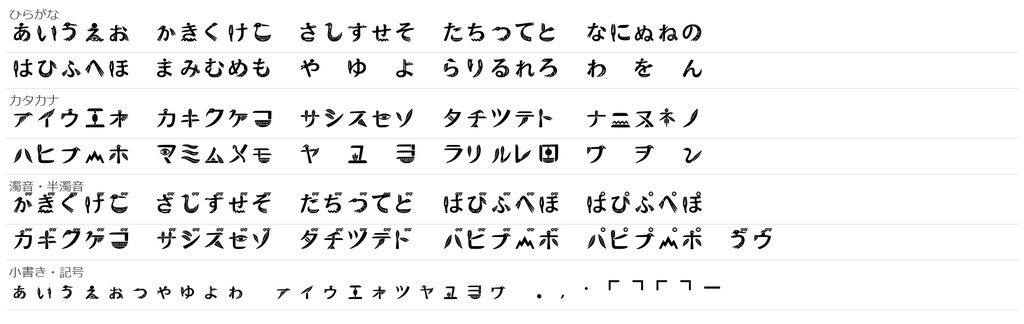 ひらがな
あいうえお かきくけこ さしすせそ たちつてと なにぬねの
はひふへほ まみむめも や ゆ よ らりるれろ わ を ん
カタカナ
アイウエオ カキクケコ サシスセソ タチツテト ナニヌネノ
ハヒフヘホ マミムメモ ヤ ユ ヨ ラリルレロ ワ ヲ ン
濁音・半濁音
がぎぐげご ざじずぜぞ だぢづでど ばびぶべぼ ぱぴぷぺぽ
ガギグゲゴ ザジズゼゾ ダヂヅデド バビブベボ パピプペポ ゔヴ
小書き・記号
ぁぃぅぇぉっゃゅょゎ ァィゥェォッャュョヮ . , ・「」『』ー